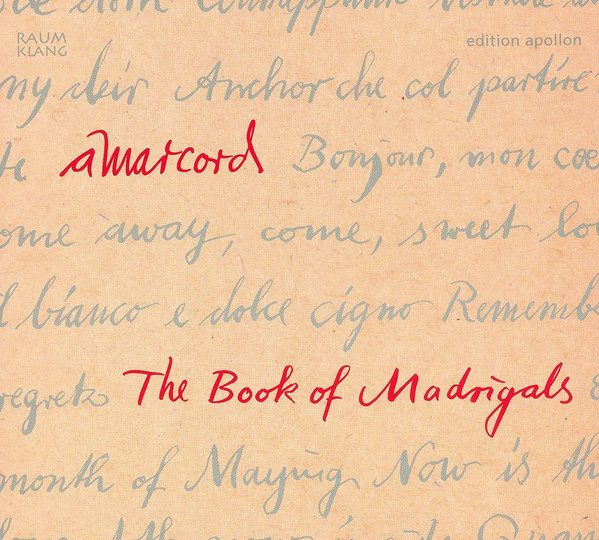 RAUM
KLANG
edition apollon
my deir Anchor che col partire
te amarcord Bonjour, mon coe
ome away, come, sweet lo
il bianco e dolce cigno Rememb
regretz The Book of Madrigals
month of Maying Now is th